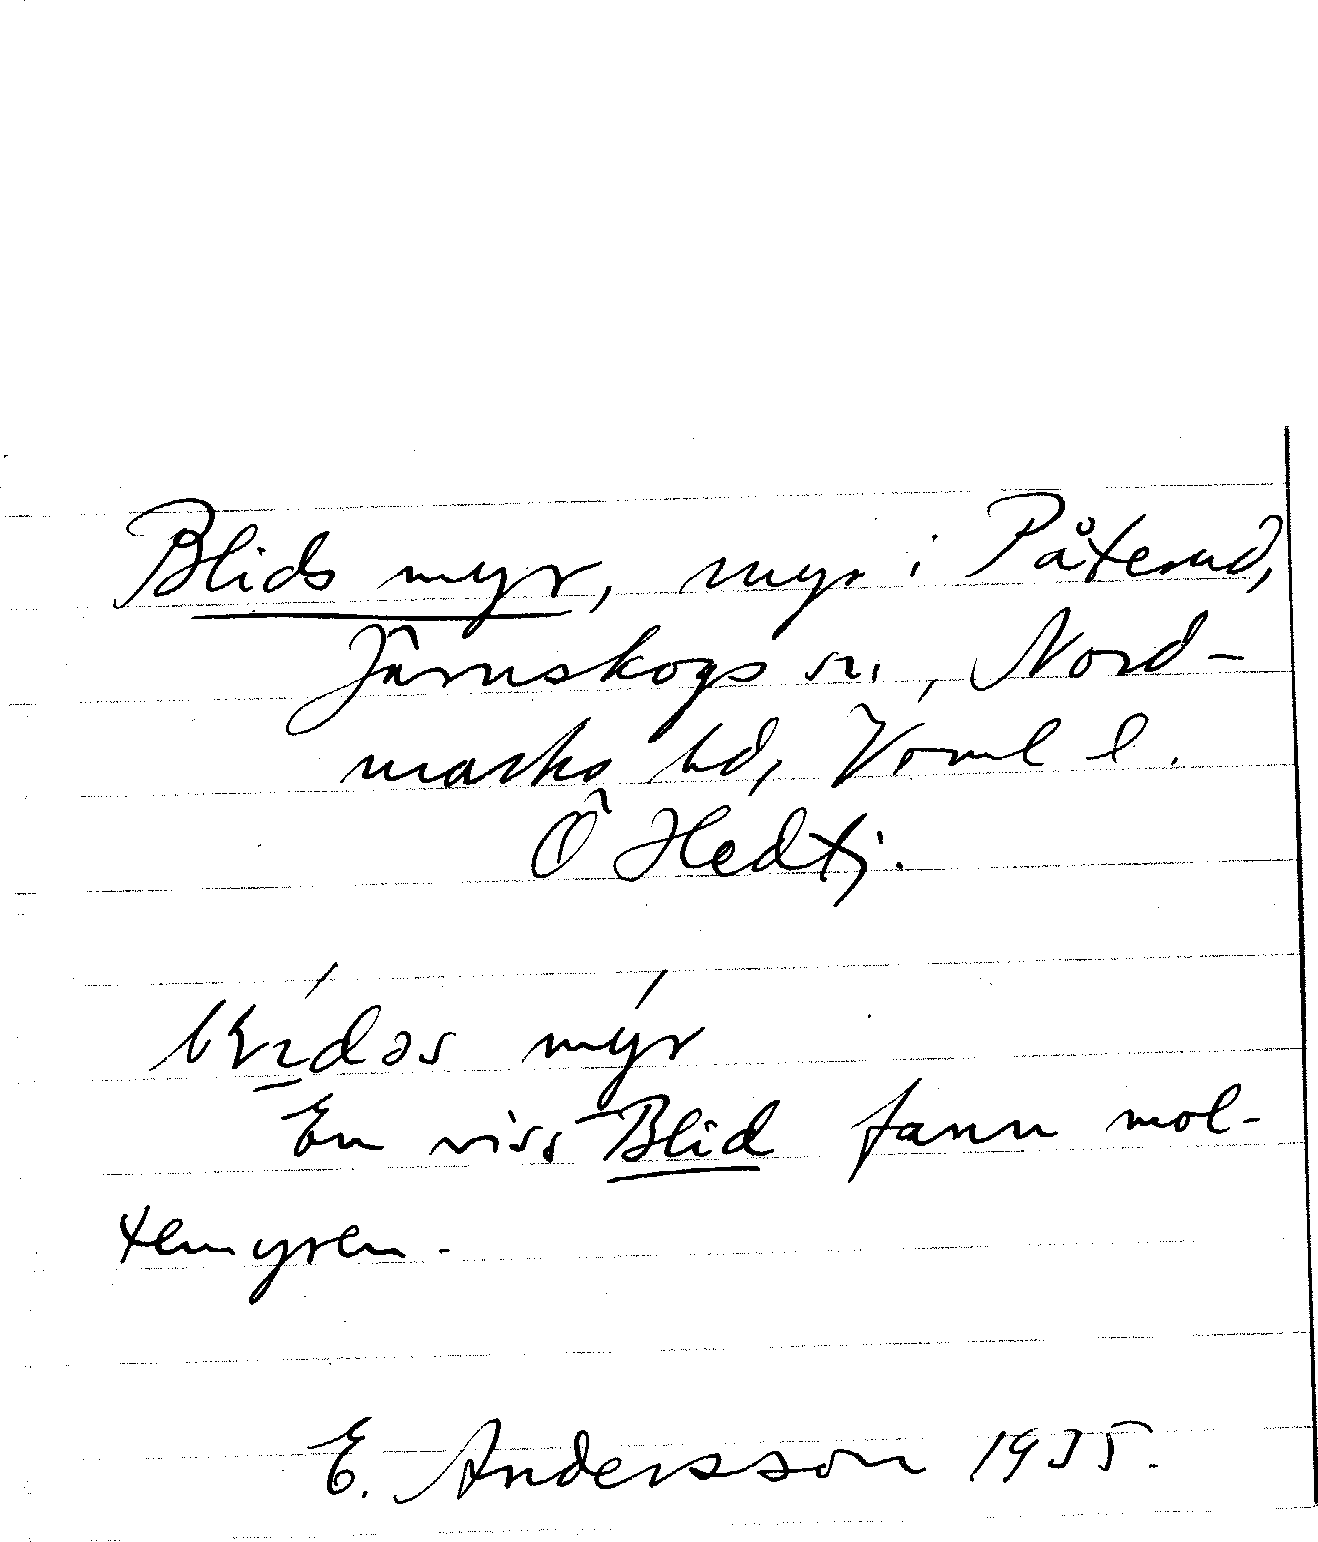 Blids myr, myr i Påterud,
Järnskogs sn, Nord-
marks hd, Värml l.
Ö Hedtj.
myr
En viss Blid fann mol-
temyren.
E. Andersson 1935.